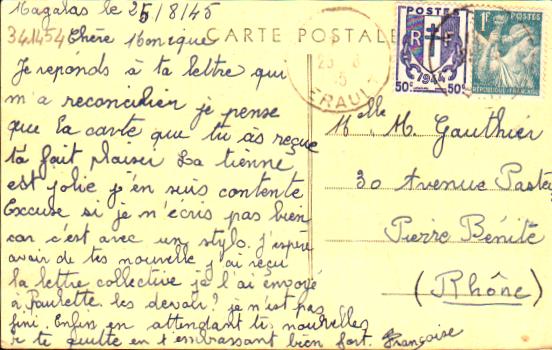 Magalas le 25/8/45
341454 Chère Monique
Je reponds à ta lettre qui
m'a reconcilier je pense
que la carte que tu as reçue
ta fait plaisir La tienne
est jolie j'en suis contente
Excuse si je n'écris pas bien
car c'est avec un stylo. j'espère
avoir de tes nouvelle j'ai reçu
la lettre collective je l'ai envoyé
à Paulette les devoir? je n'est pas
fini. Enfin en attendant tes nouvelles
je te quitte en t'embrassant bien fort. Françoise
CARTE POSTALE
HERAULT
POSTES
RF
1944
50c 50c
1F POSTES
REPUBLIQUE FRANÇAISE
Melle M. Gauthier
30 Avenue Pasteur
Pierre Bénite
(Rhône)